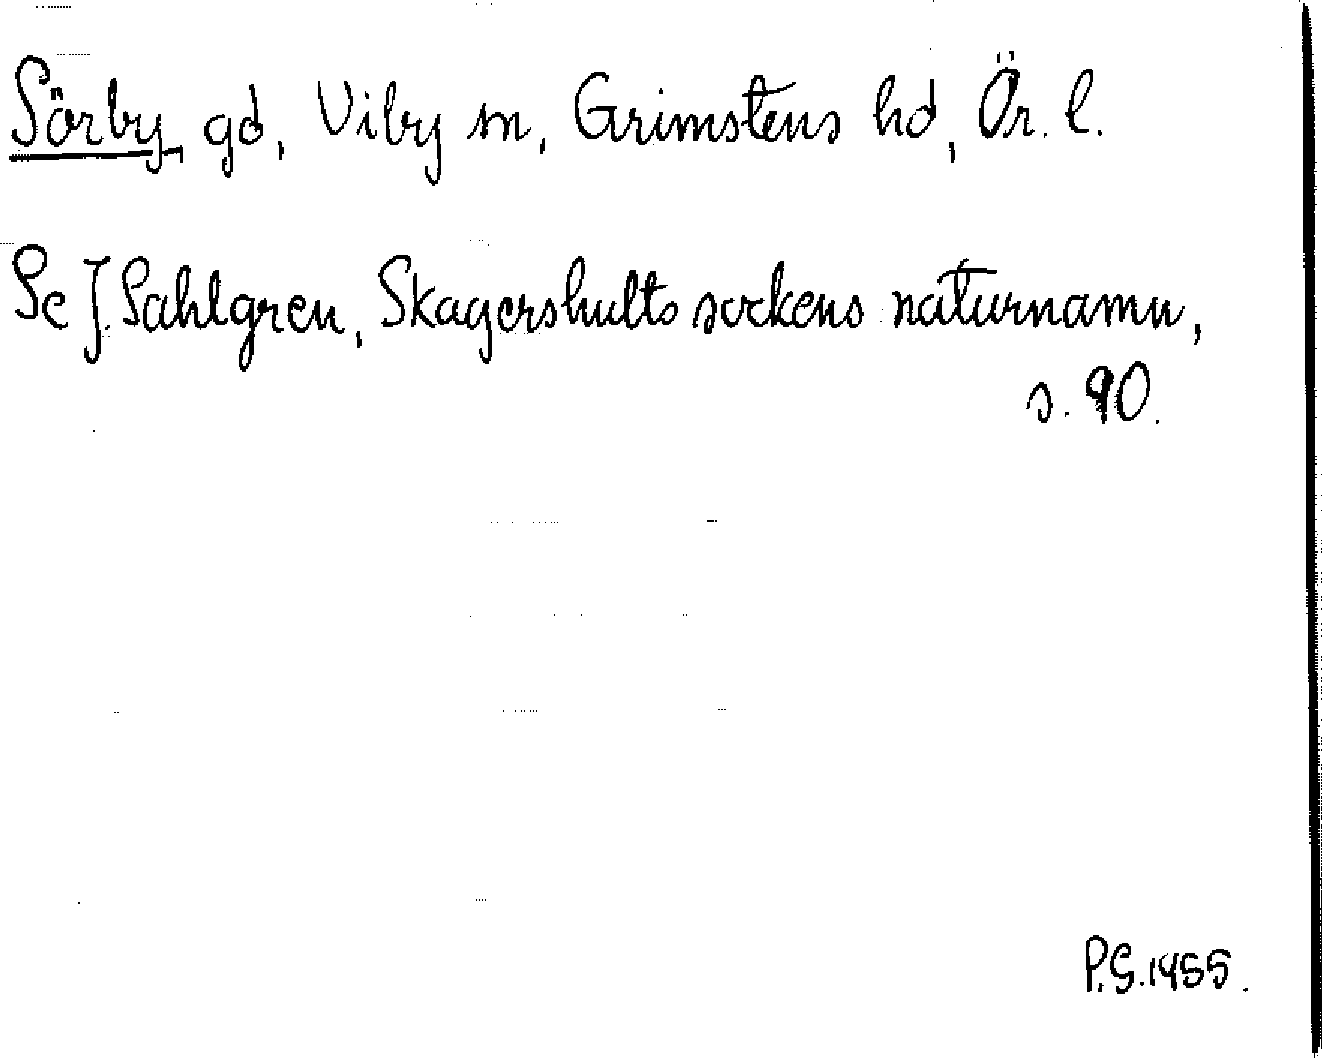 Sörby, gd, Viby sn, Grimstens hd, Ör. l.
Se J. Sahlgren, Skagershults sockens naturnamn,
s. 90.
P.G. 1955.